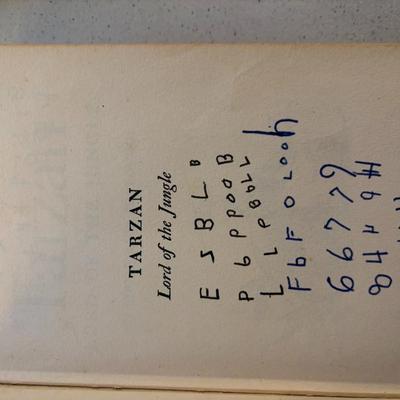 TARZAN
Lord of the Jungle
E S B L B
P b P P O O B
L L P B O L L
F b F O L O O h
6 6 7 7 9
8 4 4 6